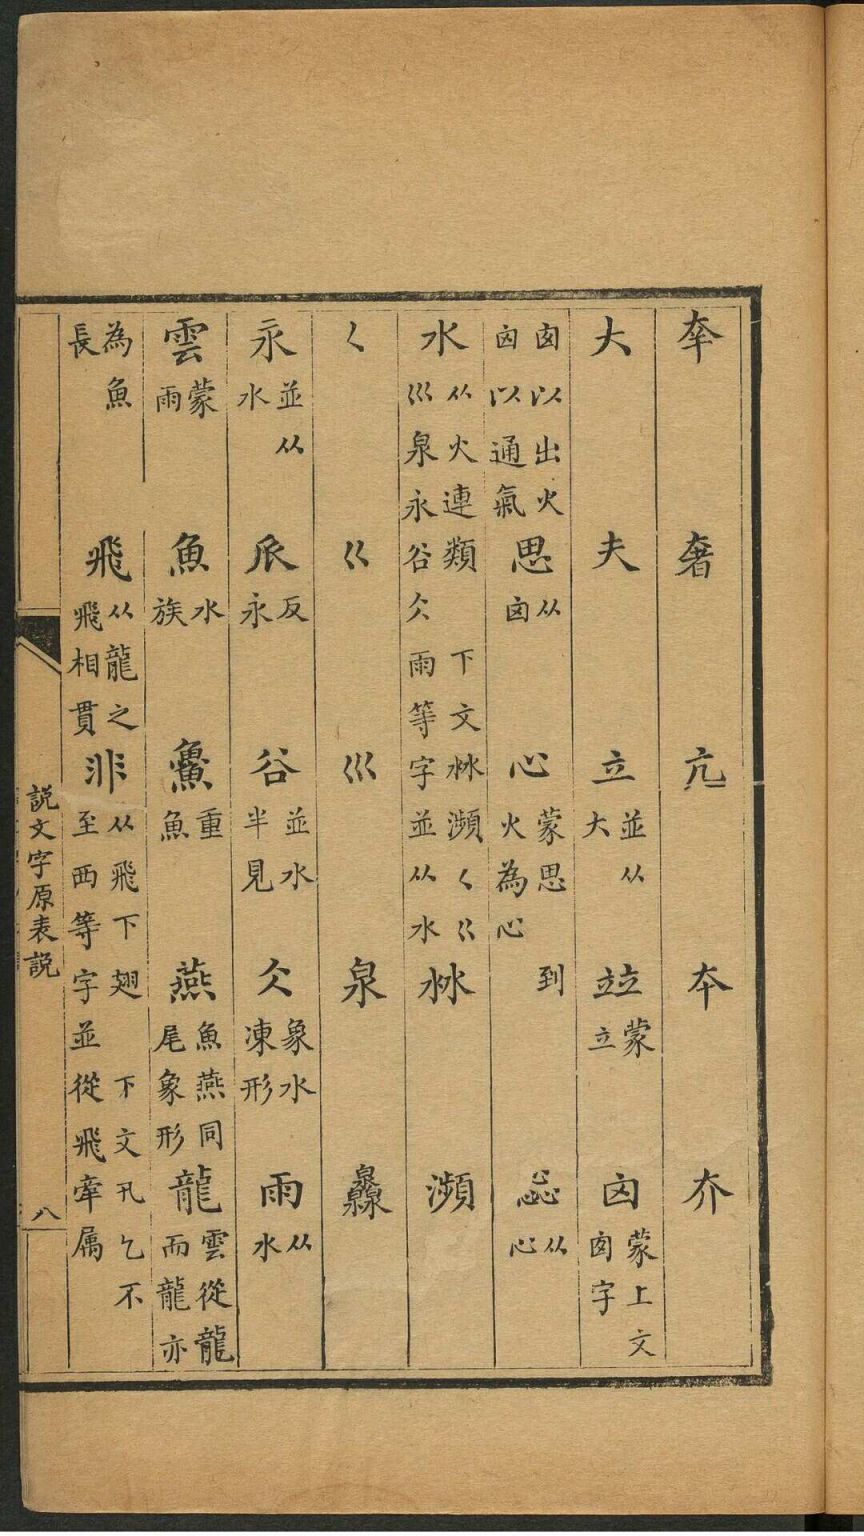 㚔 奢 亢 夲 夰
大 夫 立 並从大 竝 蒙立 囟 蒙上文囱字
囱以出火囟以通氣 思 从囟 心 蒙思到火為心 惢 从心
水 从火連類下文沝瀕〈巜巛泉永谷仌雨等字並从水 沝 瀕
〈 巜 巛 泉 灥
永 並从水 𠂢 反永 谷 並水半見 仌 象水凍形 雨 从水
雲 蒙雨 魚 水族 䲆 重魚 燕 魚燕同尾象形 龍 雲從龍而龍亦
為魚長 飛 从龍之飛相貫 非 从飛下翅下文卂乞不至西等字並從飛牽属
說文字原表說 八